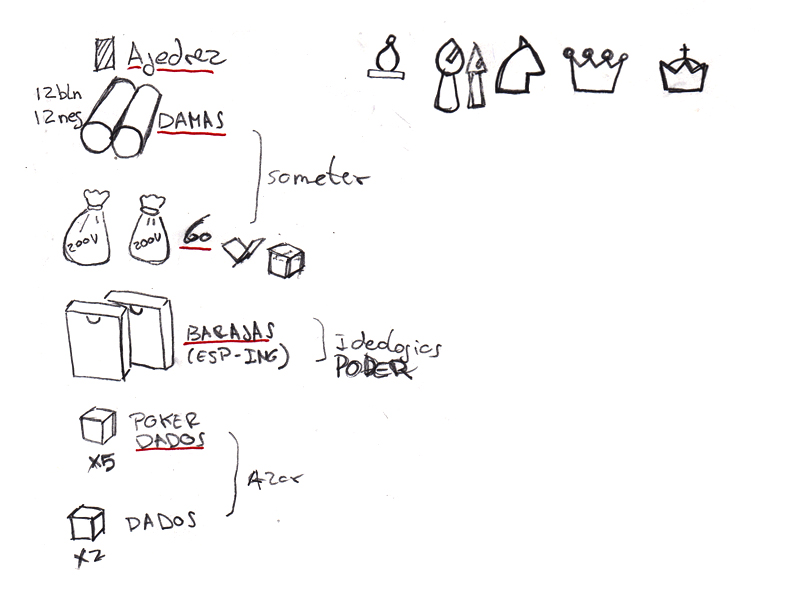 Ajedrez
12 bln
12 neg
DAMAS
someter
200U
200U
Go
BARAJAS
(ESP-ING)
Ideologics
PODER
POKER
DADOS
X5
Azar
DADOS
X2